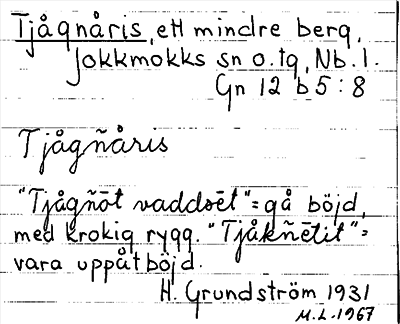 Tjågnåris, ett mindre berg,
Jokkmokks sn o. tg, Nb. l.
Gn 12 b 5 : 8
Tjågñåris
"Tjågñōt vaddsēt" = gå böjd,
med krokig rygg. "Tjåkñētit" =
vara uppåtböjd.
H. Grundström 1931
M.L. 1967